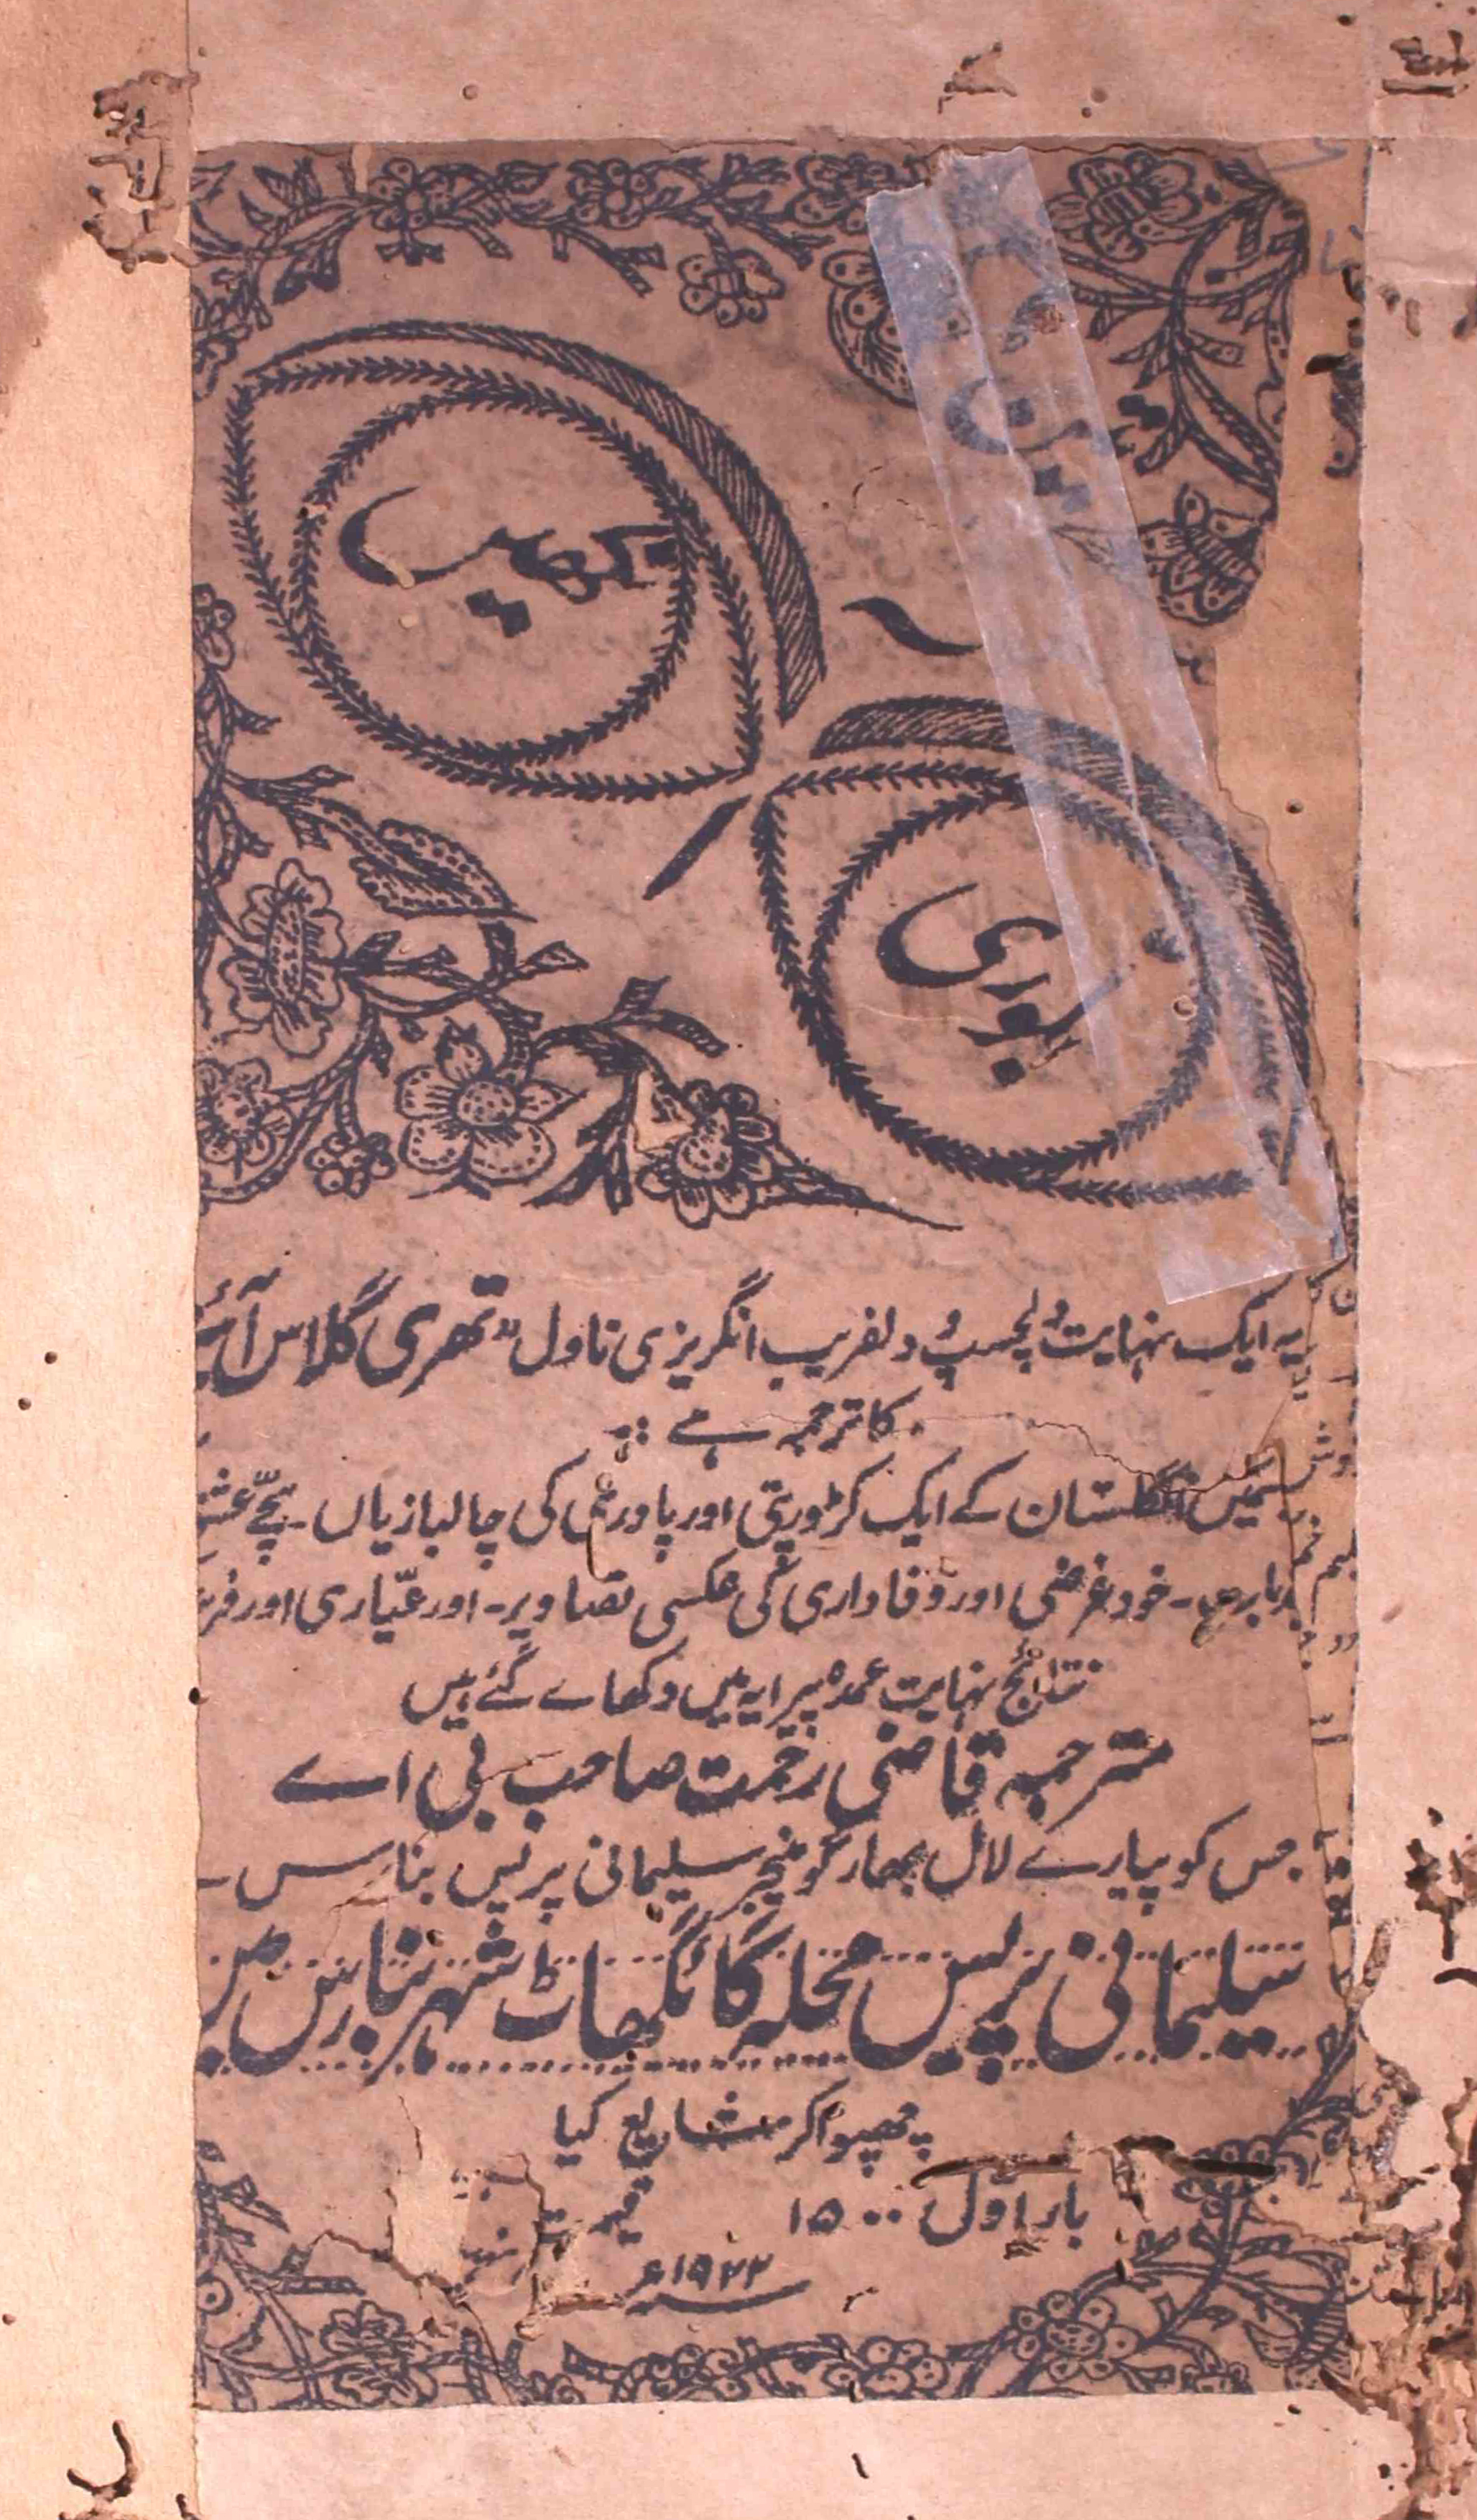 تین
بلوری
آنکھیں
یہ ایک نہایت دلچسپ و دلفریب انگریزی ناول "تھری گلاس آئیز
کا ترجمہ ہے :-
اسمیں انگلستان کے ایک کڑوڑپتی اور پادری کی چالبازیاں - سچّے عشق
خودغرضی اور وفاداری کی عکسی تصاویر - اور عیّاری اور
نتائج نہایت عمدہ پیرایہ میں دکھائے گئے ہیں
مترجمہ قاضی رحمت صاحب بی اے
جس کو پیارے لال بھارگو منیجر سلیمانی پریس بنارس نے
سلیمانی پریس محلہ گائے گھاٹ شہر بنارس میں
چھپواکر شایع کیا
بار اوّل ۱۵۰۰ قیمت
۱۹۲۲ء